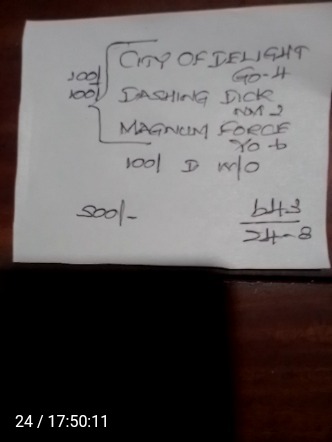 CITY OF DELIGHT
GO-4
100/
100/ DASHING DICK
NM 2
MAGNUM FORCE
YO-6
100/ D W/O
500/-
643
24-8
24 / 17:50:11